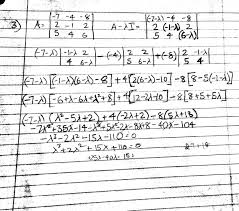 3) A = |-7 -4 -8| |2 -1 2| |5 4 6| A-λI = |(-7-λ) -4 -8| |2 -1-λ 2| |5 4 (6-λ)|
(-7-λ) |-1-λ 2| |4 6-λ| -(-4) |2 2| |5 6-λ| +(-8) |2 -1-λ| |5 4|
(-7-λ) [(-1-λ)(6-λ) -8] + 4[2(6-λ)-10] -8[8-5(-1-λ)]
(-7-λ) [-6+λ-6λ+λ²-8] + 4[12-2λ-10] -8[8+5+5λ]
(-7-λ)(λ²-5λ
+4(-2λ+2) -8(5λ+13)
-λ³-2λ²-15λ-110=0
λ³+2λ²+15λ+110=0